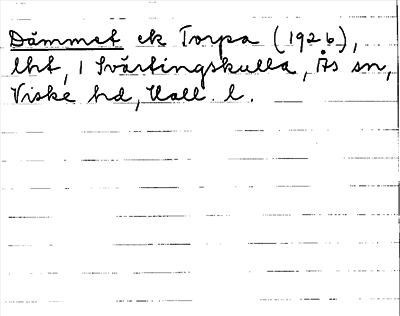 Dämmet ek Torpa (1926),
lht, 1 Svärtingskulla, Ås sn,
Viske hd, Hall. l.